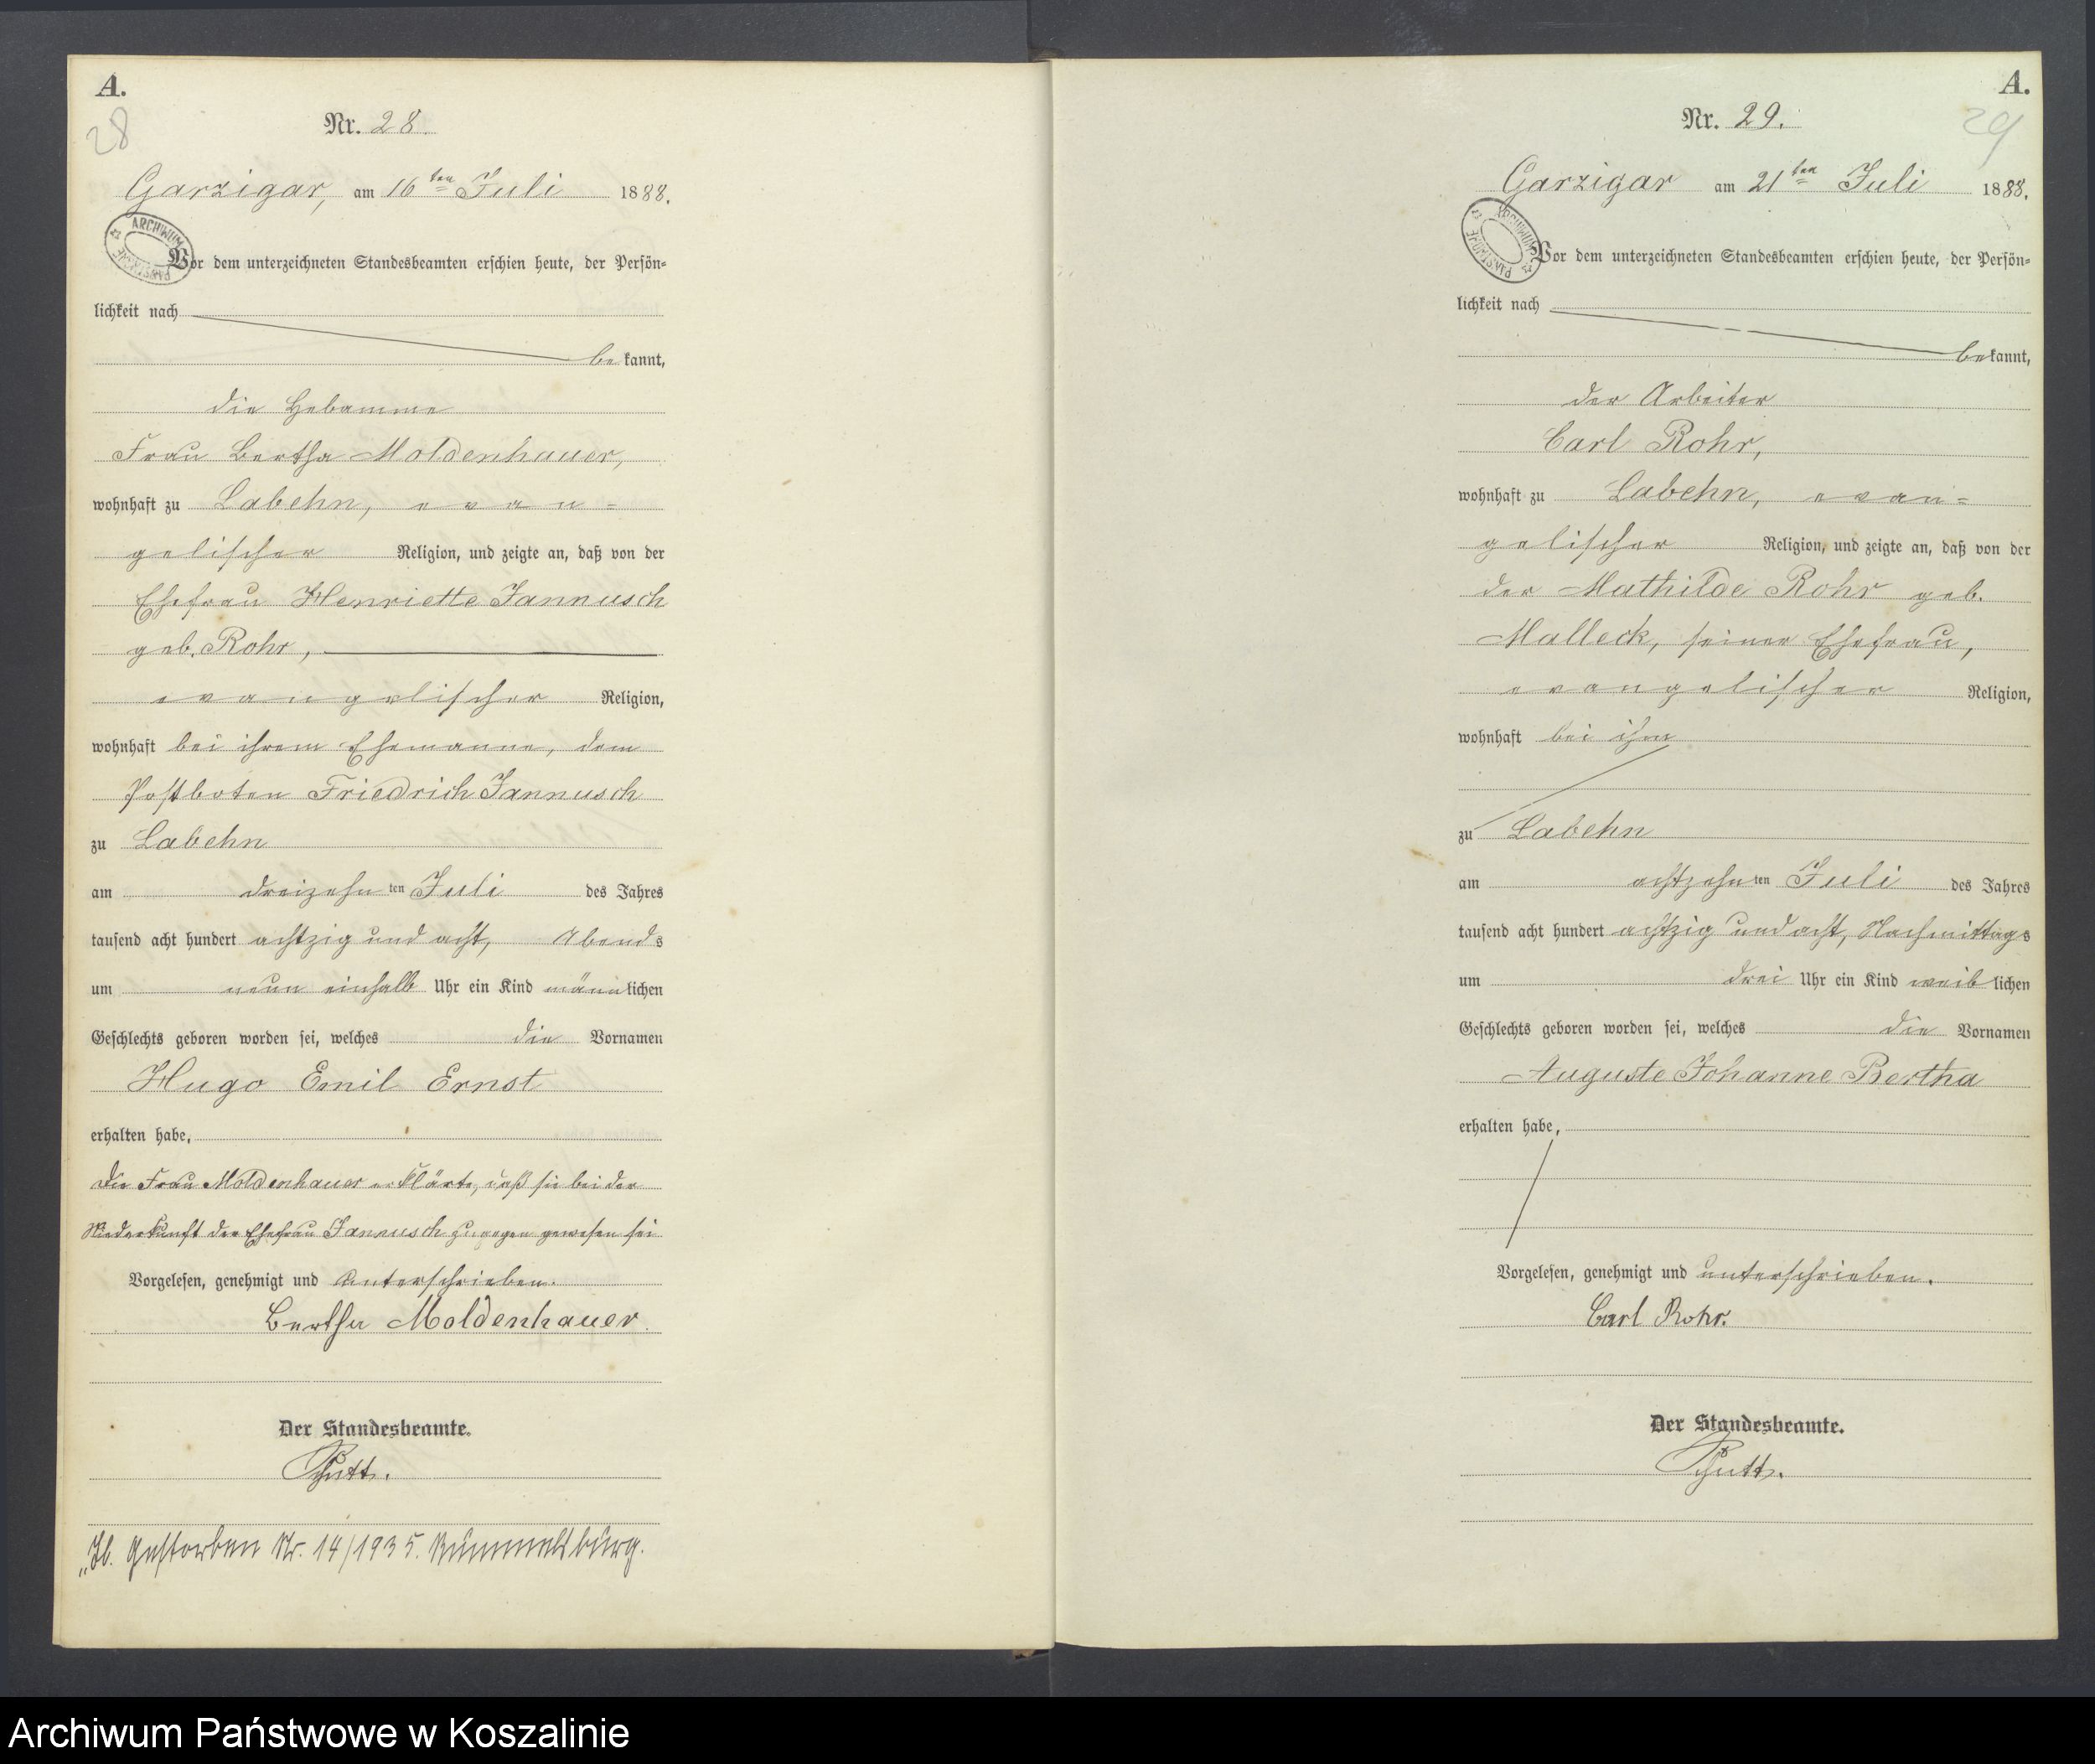 A.
28
Nr. 28.
Garzigar, am 16ten Juli 1888.
ARCHIWUM PAŃSTWOWE
Vor dem unterzeichneten Standesbeamten erschien heute, der Persön=
lichkeit nach
bekannt,
die Hebamme
Frau Bertha Moldenhauer,
wohnhaft zu Labehn, evan=
gelischer Religion, und zeigte an, daß von der
Ehefrau Henriette Jannusch
geb. Rohr,
evangelischer Religion,
wohnhaft bei ihrem Ehemanne, dem
Postboten Friedrich Jannusch
zu Labehn
am dreizehnten Juli des Jahres
tausend acht hundert achtzig und acht, Abends
um neun einhalb Uhr ein Kind männlichen
Geschlechts geboren worden sei, welches die Vornamen
Hugo Emil Ernst
erhalten habe,
Die Frau Moldenhauer erklärte, daß sie bei der
Niederkunft der Ehefrau Jannusch zugegen gewesen sei
Vorgelesen, genehmigt und unterschrieben.
Bertha Moldenhauer.
Der Standesbeamte.
„Gestorben Nr. 14/1935. Rummelsburg.
A.
29
Nr. 29.
Garzigar am 21ten Juli 1888.
ARCHIWUM PAŃSTWOWE
Vor dem unterzeichneten Standesbeamten erschien heute, der Persön=
lichkeit nach
bekannt,
der Arbeiter
Carl Rohr,
wohnhaft zu Labehn, evan=
gelischer Religion, und zeigte an, daß von der
der Mathilde Rohr geb.
Malleck, seiner Ehefrau,
evangelischer Religion,
wohnhaft bei ihm
zu Labehn
am achtzehnten Juli des Jahres
tausend acht hundert achtzig und acht, Nachmittags
um drei Uhr ein Kind weiblichen
Geschlechts geboren worden sei, welches die Vornamen
Auguste Johanne Bertha
erhalten habe,
Vorgelesen, genehmigt und unterschrieben.
Carl Rohr.
Der Standesbeamte.
Archiwum Państwowe w Koszalinie